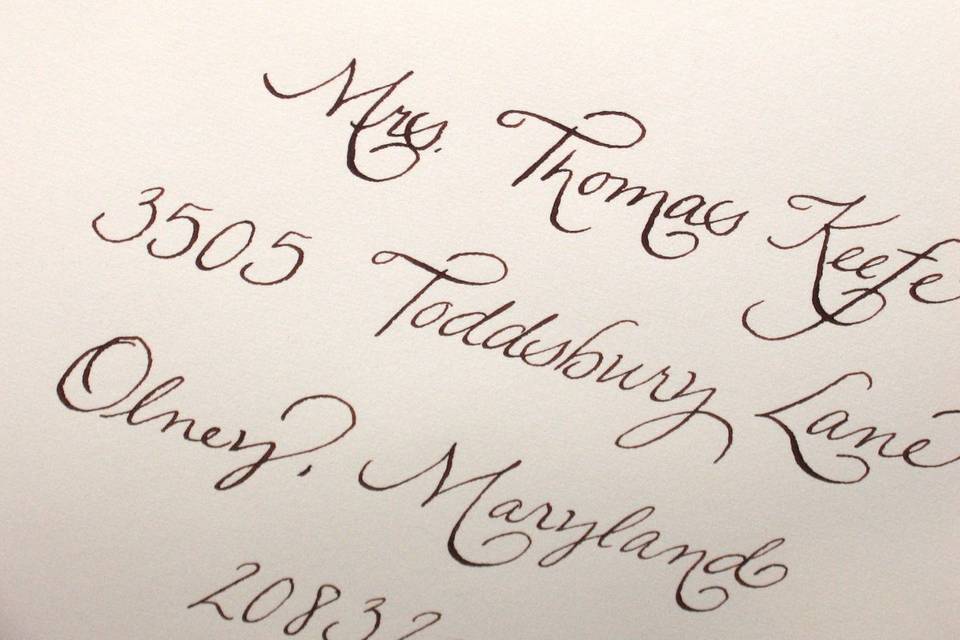 Mrs. Thomas Keefe
3505 Toddsbury Lane
Olney, Maryland
20832